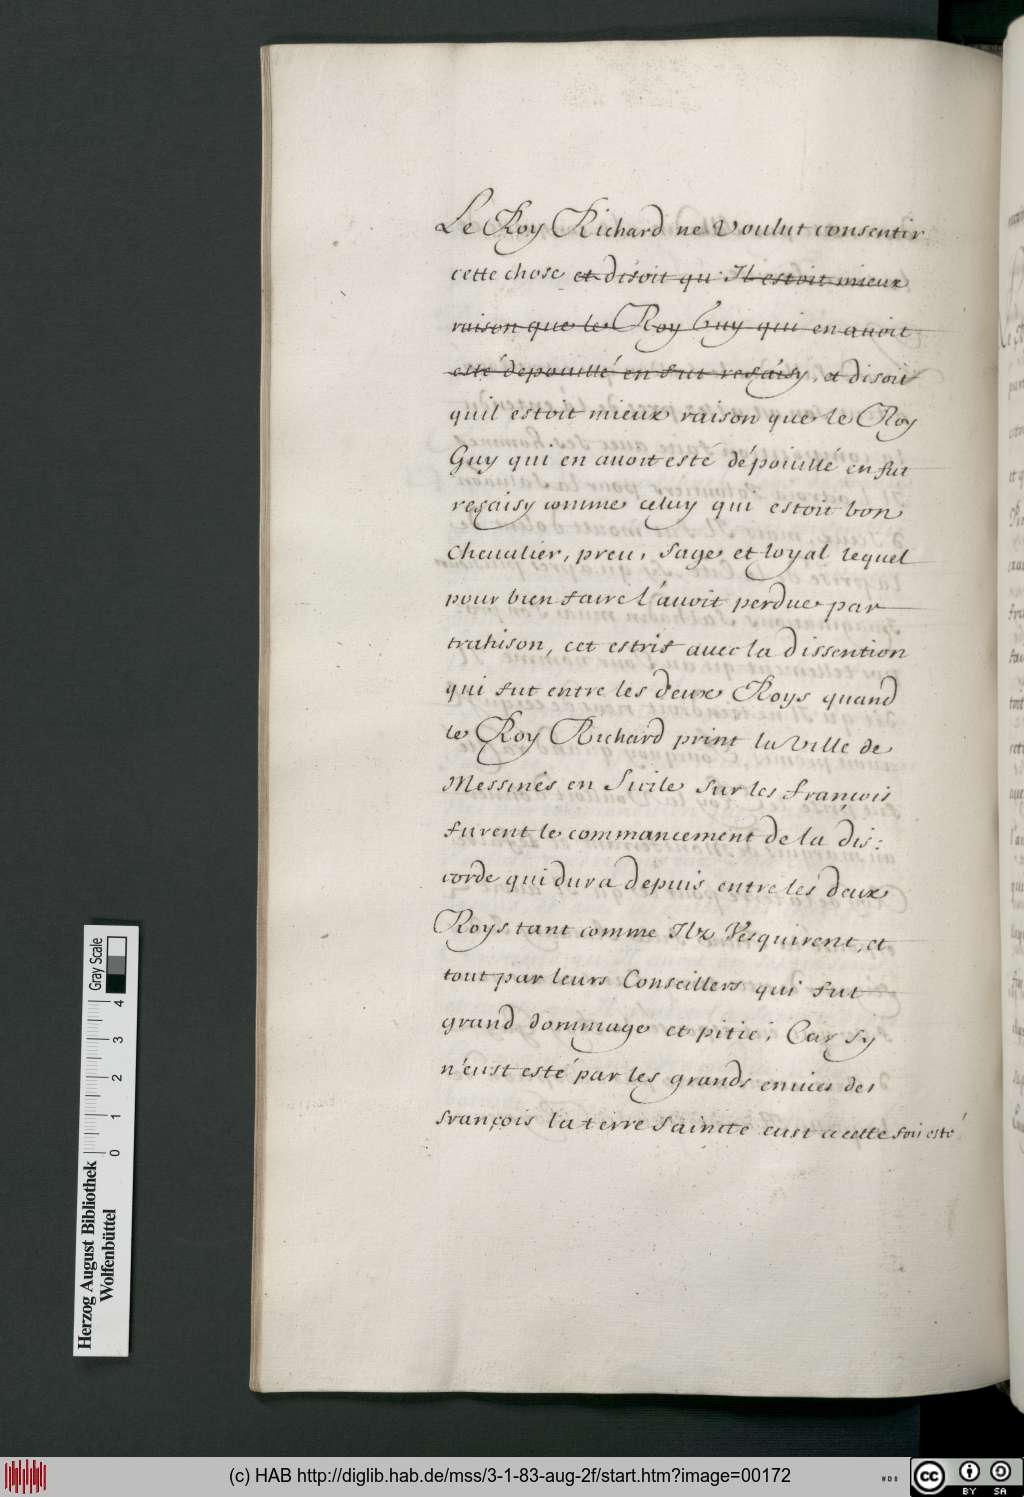 Le Roy Richard ne Voulut consentir
cette chose et disoit qu'Il estoit mieux
raison que le Roy Guy qui en auoit
esté depouillé en fut resaisy, et disoit
quil estoit mieux raison que le Roy
Guy qui en auoit esté dépouille en fut
resaisy comme celuy qui estoit bon
Cheualier, preu, sage et loyal lequel
pour bien faire l'auoit perdue par
trahison, cet estrif auec la dissention
qui fut entre les deux Roys quand
le Roy Richard print la Ville de
Messines en Sicile sur les françois
furent le commancement de la dis:
corde qui dura depuis entre les deux
Roys tant comme Ilz Vesquirent, et
tout par leurs Conseillers qui fut
grand dommage et pitié, Car sy
n'eust esté par les grands enuies des
françois la terre saincte eust a celle fois esté
Gray Scale
0 1 2 3 4
Herzog August Bibliothek
Wolfenbüttel
(c) HAB http://diglib.hab.de/mss/3-1-83-aug-2f/start.htm?image=00172
WDB
cc BY SA